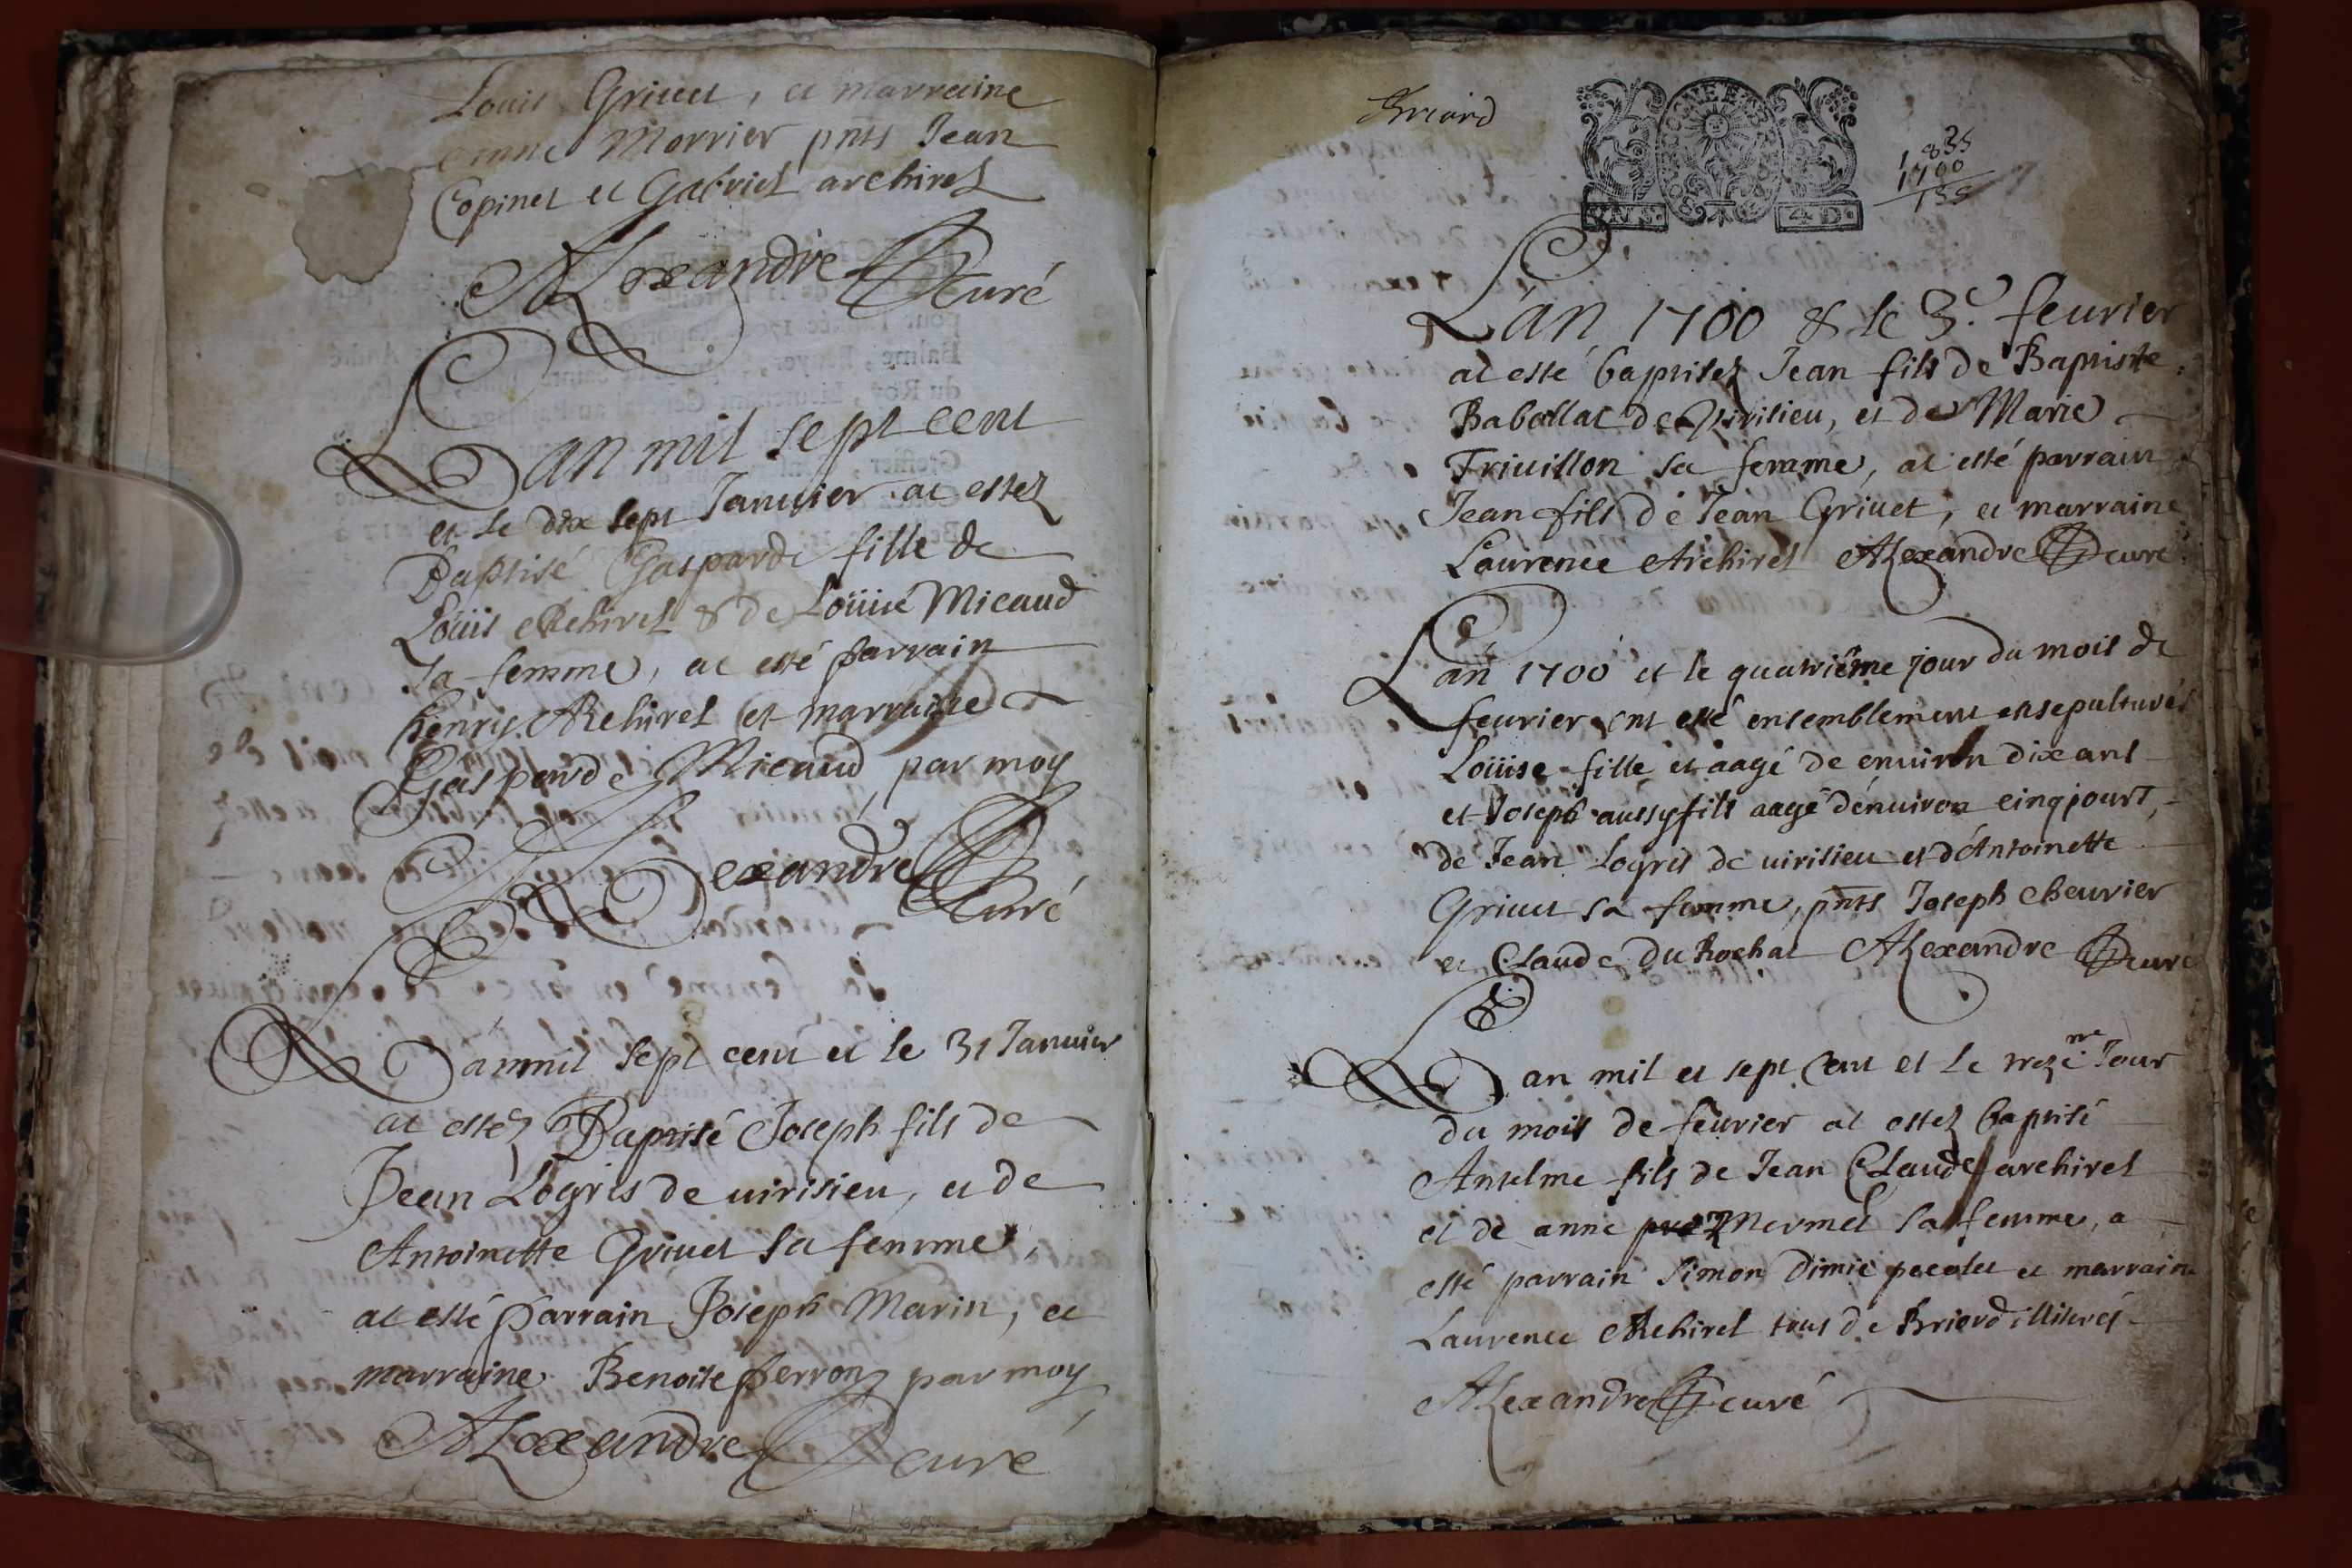 Louis Griuet, et marraine
Morrier pñts Jean
Copinet et Gabriel archirel
Alexandre Curé
L'an mil sept cent
et le dix sept Januier at estez
Baptisé Gasparde fille de
Loüis Archirel & de Loüise Micaud
sa femme, at esté parrain
henry Archirel et marraine
Gasparde Micaud par moy
Alexandre Curé
L'an mil sept cent et le 31 Januier
at estez Baptisé Joseph fils de
Jean Logris de uirisieu, et de
Antoinette Griuet sa femme,
at esté parrain Joseph Marin, et
marraine Benoite perron par moy
Alexandre curé
Briord
BOURGOGNE E BRESSE
4 D.
1835
1700
135
L'an 1700 & le 3.e feurier
at esté baptisez Jean fils de Baptiste
Baballat de Virisieu, et de Marie
Triuillon sa femme, at esté parrain
Jean fils de Jean Griuet, et marraine
Laurence Archirel Alexandre curé
L'an 1700 et le quatriême jour du mois de
feurier ont esté ensemblement ensepulturés
Loüise fille et aagé de enuiron dix ans
et Joseph aussy fils aagé d'enuiron cinq jours,
de Jean Logris de uirisieu et d'Antoinette
Griuet sa femme, pñts Joseph cheurier
et Claude Du Rochat Alexandre curé
L'an mil et sept cent et le treze.me Jour
du mois de feurier at estez baptisé
Anselme fils de Jean Claude archirel
et de anne Mermet sa femme, a
esté parrain Simon Dimié pecolet et marraine
Laurence Archirel tous de Briord illiterés
Alexandre curé